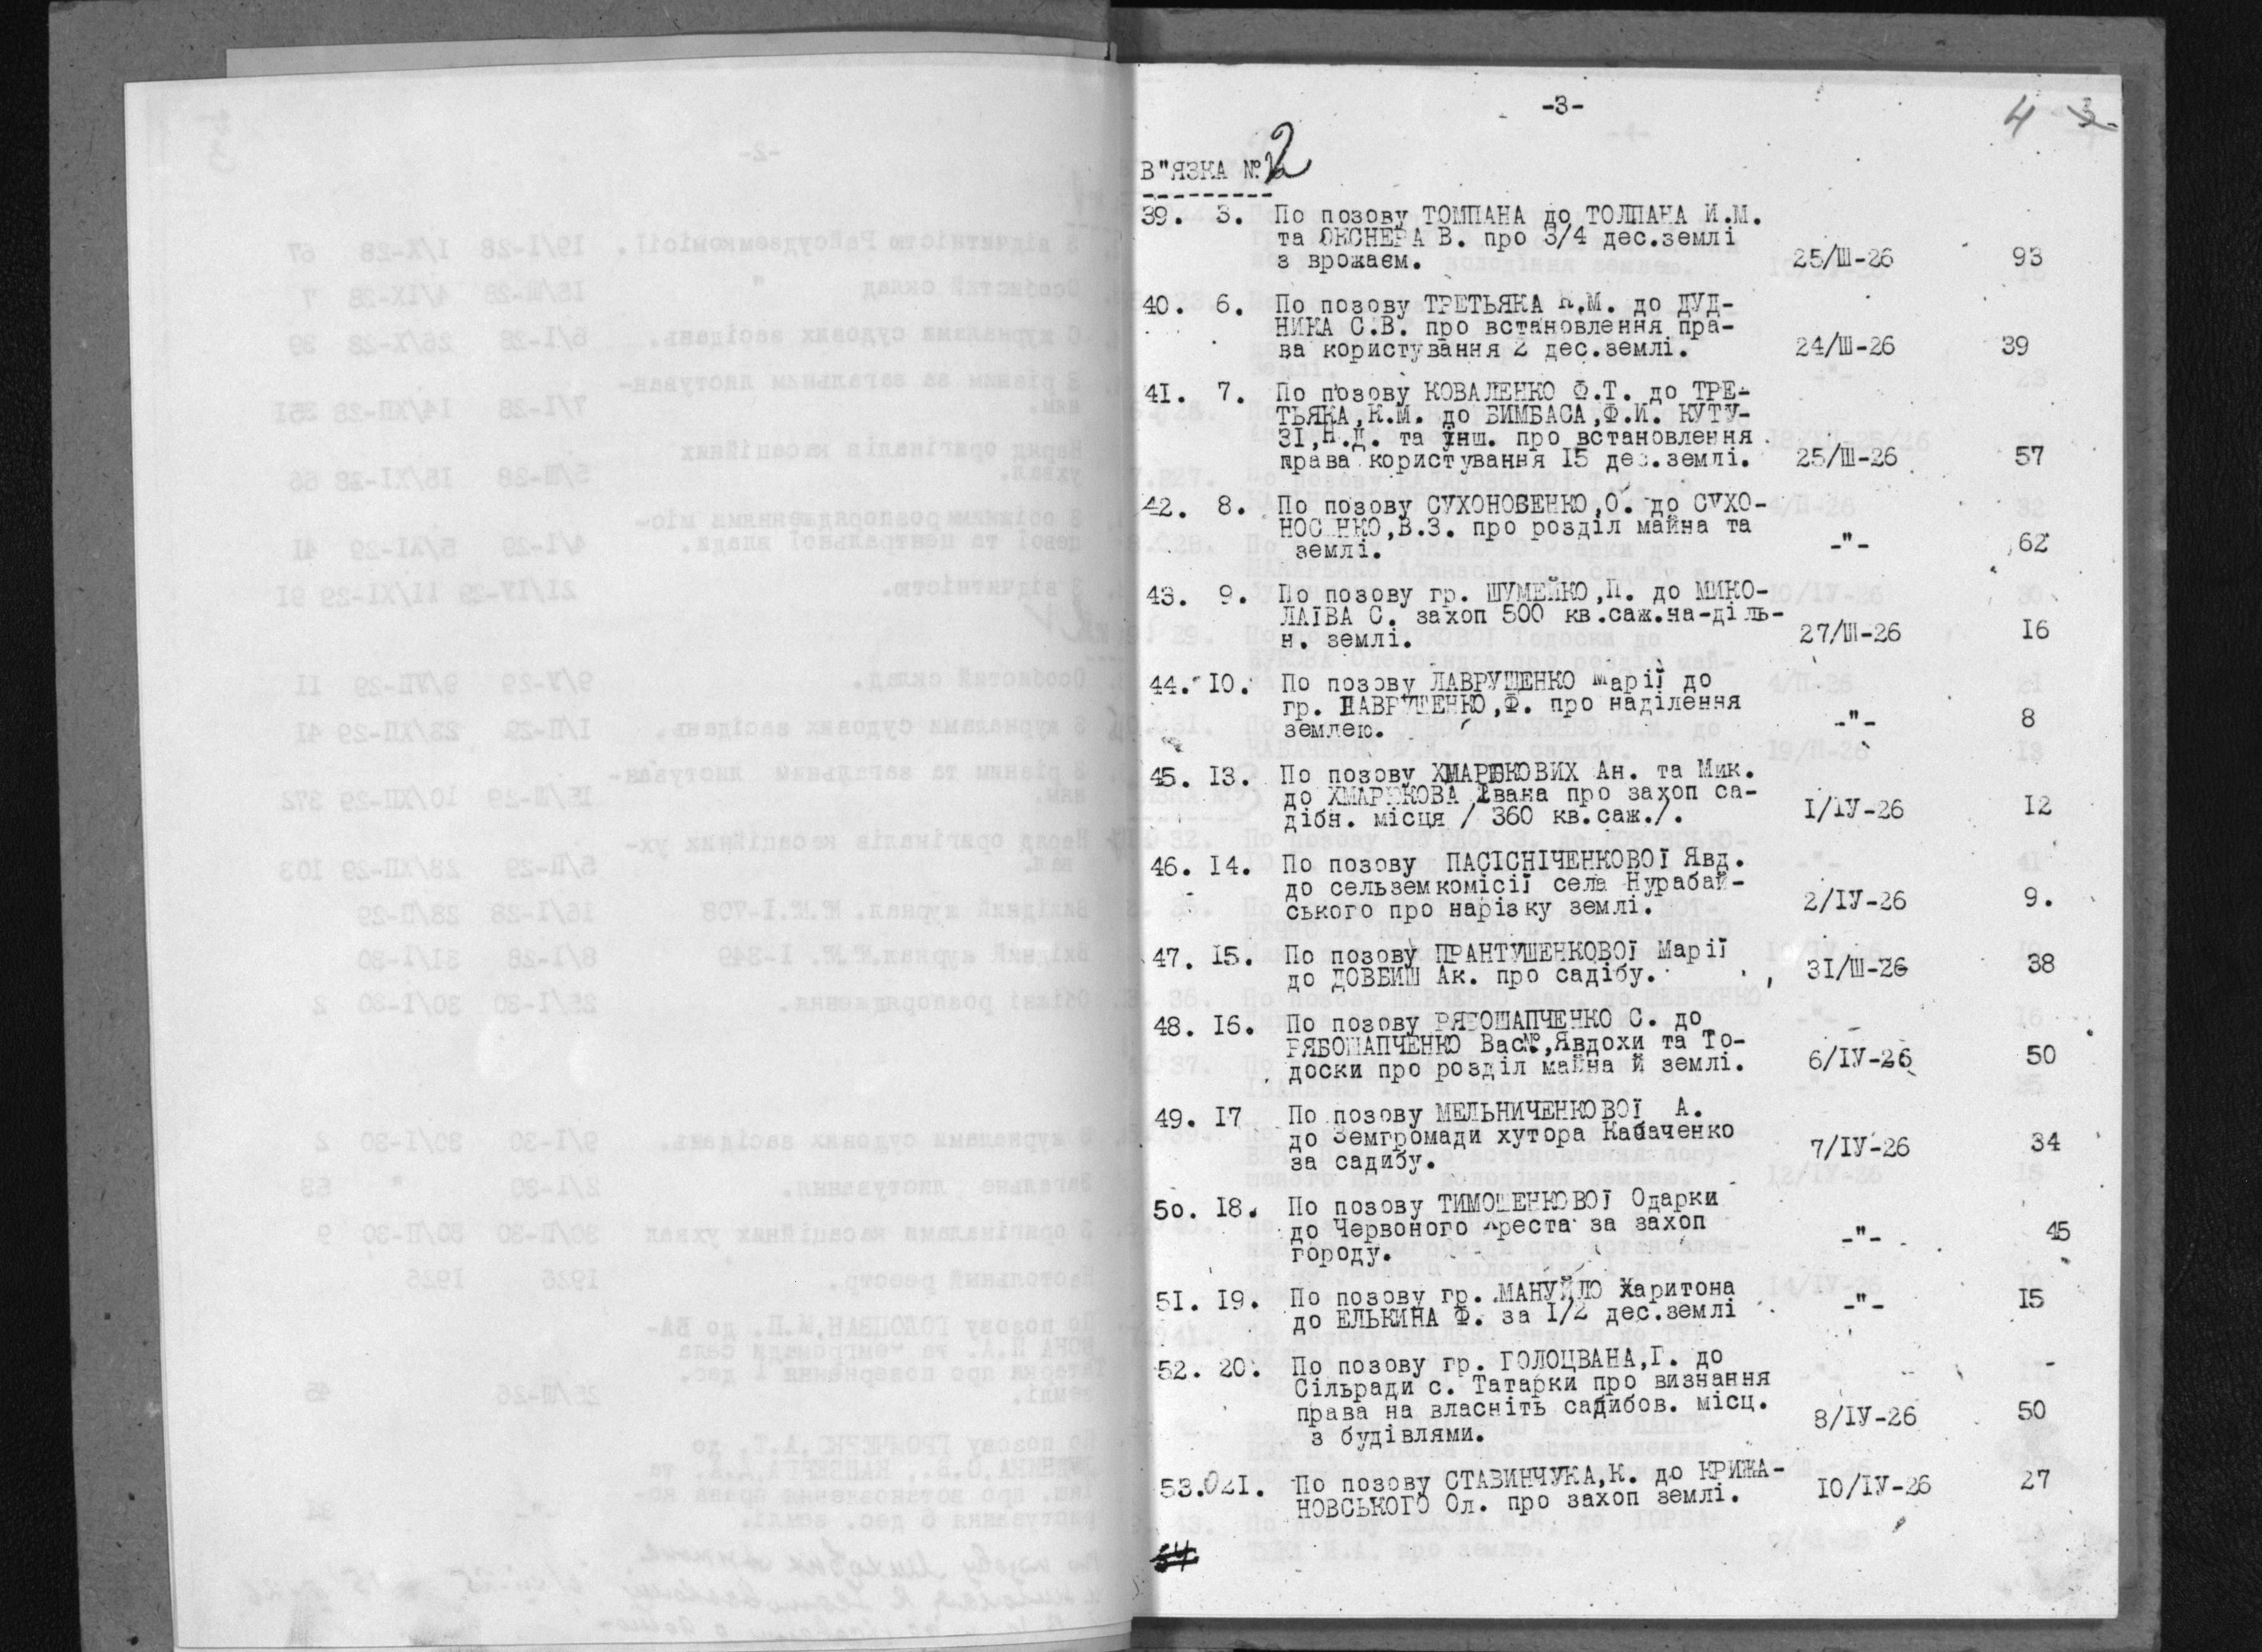 -3-
4 3
В"ЯЗКА № 2
39. 3. По позову ТОМПАНА до ТОЛПАНА И.М.
та ОКСНЕРА В. про 3/4 дес.землі
з врожаєм. 25/Ш-26 93
40. 6. По позову ТРЕТЬЯКА К.М. до ДУД-
НИКА С.В. про встановлення пра-
ва користування 2 дес.землі. 24/Ш-26 39
41. 7. По позову КОВАЛЕНКО Ф.Т. до ТРЕ-
ТЬЯКА,К.М. до БИМБАСА,Ф.И. КУТУ-
ЗІ,Н.Д. та інш. про встановлення
права користування I5 дес.землі. 25/Ш-26 57
42. 8. По позову СУХОНОСЕНКО,О. до СУХО-
НОСЕНКО,В.З. про розділ майна та
землі. -"- 62
43. 9. По позову гр. ШУМЕЙКО,П. до МИКО-
ЛАЇВА С. захоп 500 кв.саж.на-діль-
н. землі. 27/Ш-26 I6
44. I0. По позову ЛАВРУШЕНКО Марії до
гр. ЛАВРУШЕНКО,Ф. про наділення
землею. -"- 8
45. I3. По позову ХМАРЮКОВИХ Ан. та Мик.
до ХМАРЮКОВА Івана про захоп са-
дібн. місця / 360 кв.саж./. I/ІУ-26 I2
46. I4. По позову ПАСІСНІЧЕНКОВОЇ Явд.
до сельземкомісії села Нурабай-
ського про нарізку землі. 2/ІУ-26 9.
47. I5. По позову ПРАНТУШЕНКОВОЇ Марії
до ДОВБИШ Ак. про садібу. 3I/Ш-26 38
48. I6. По позову РЯБОШАПЧЕНКО С. до
РЯБОШАПЧЕНКО Вас.,Явдохи та То-
доски про розділ майна й землі. 6/ІУ-26 50
49. I7 По позову МЕЛЬНИЧЕНКОВОЇ А.
до Земгромади хутора Кабаченко
за садибу. 7/ІУ-26 34
50. I8. По позову ТИМОШЕНКОВОЇ Одарки
до Червоного Хреста за захоп
городу. -"- 45
5I. I9. По позову гр. МАНУЙЛО Харитона
до ЕЛЬКИНА Ф. за I/2 дес.землі -"- I5
52. 20. По позову гр. ГОЛОЦВАНА,Г. до
Сільради с. Татарки про визнання
права на власніть садибов. місц.
з будівлями. 8/ІУ-26 50
53. 02I. По позову СТАВИНЧУКА,К. до КРИЖА-
НОВСЬКОГО Ол. про захоп землі. I0/ІУ-26 27
54